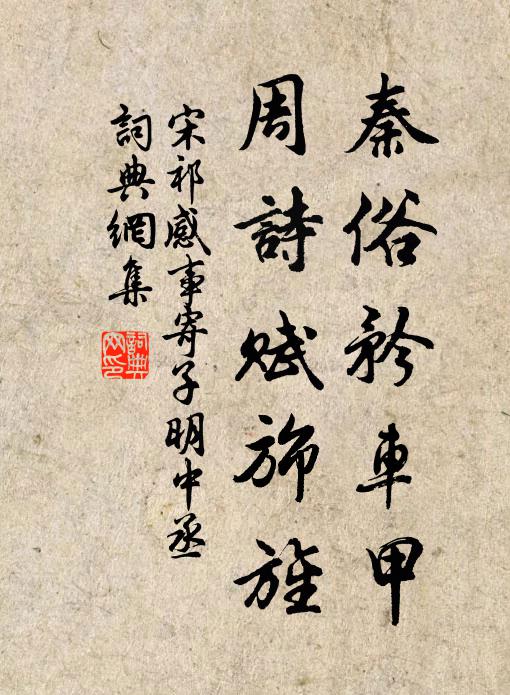 秦俗矜車甲
周詩賦旆旌
宋祁感事寄子明中丞
詞典網集
詞典
網印